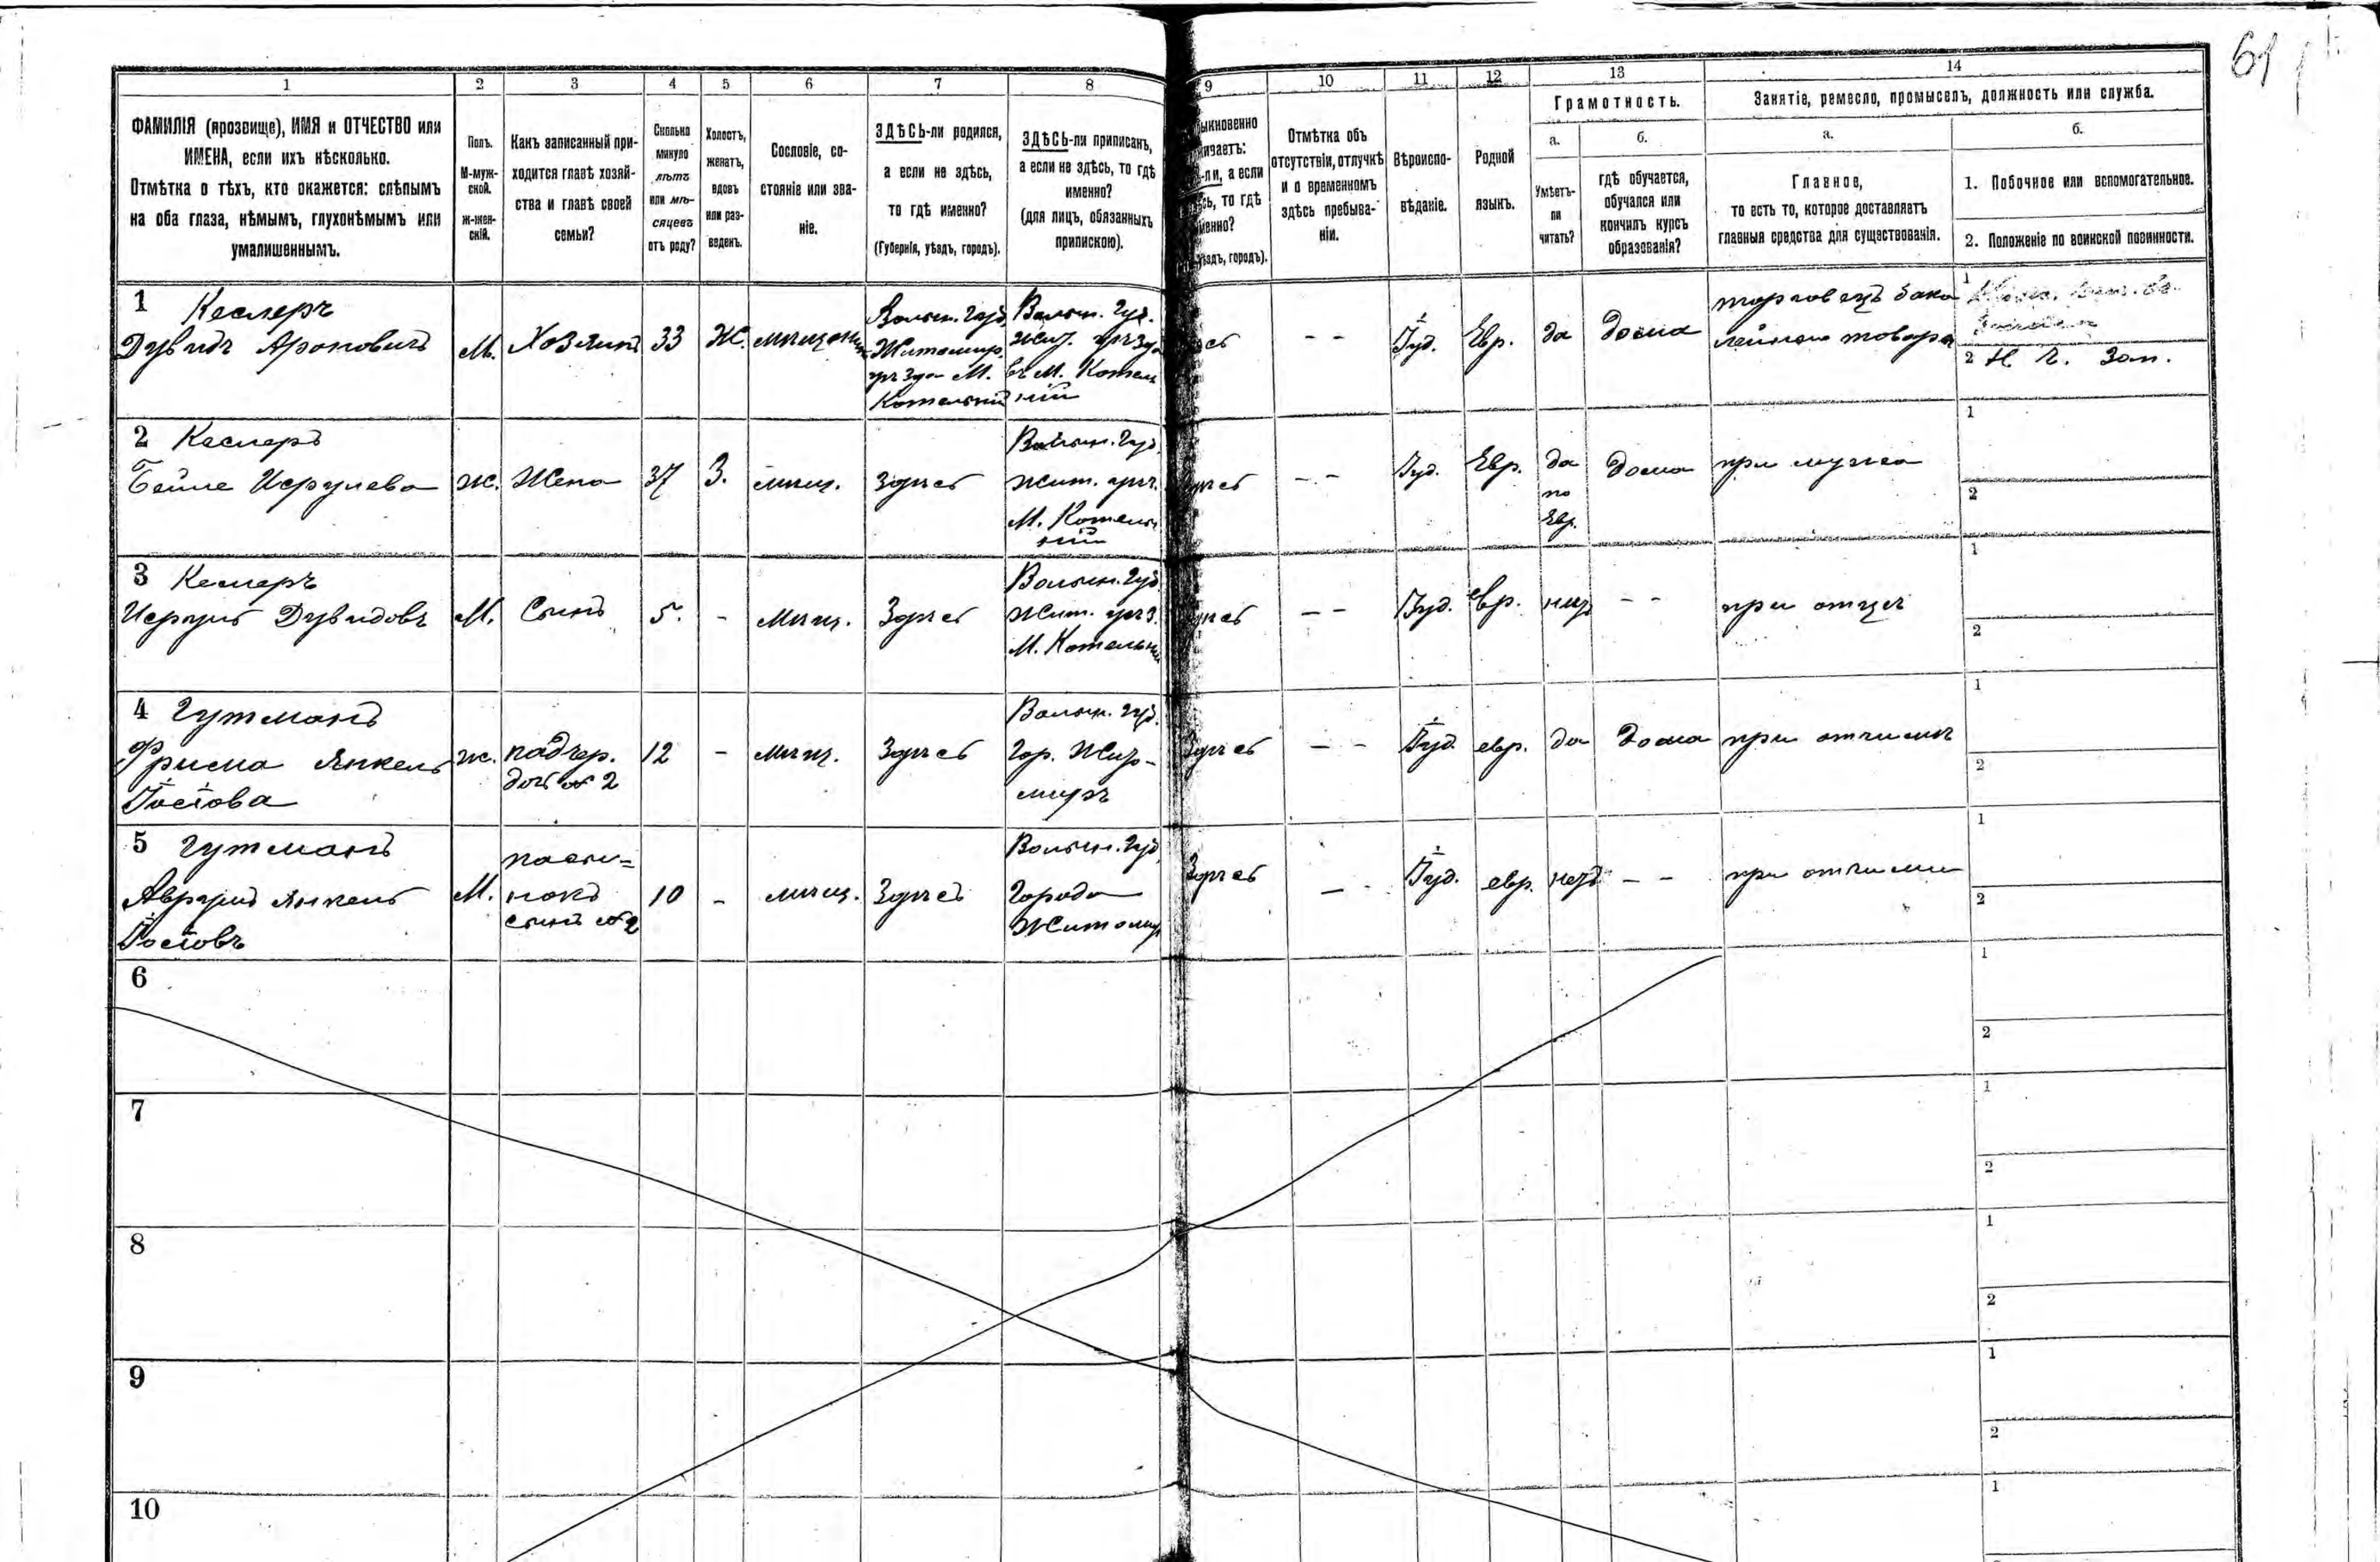 61
1 2 3 4 5 6 7 8 9 10 11 12 13 14
ФАМИЛІЯ (прозвище), ИМЯ и ОТЧЕСТВО или
ИМЕНА, если ихъ нѣсколько.
Отмѣтка о тѣхъ, кто окажется: слѣпымъ
на оба глаза, нѣмымъ, глухонѣмымъ или
умалишеннымъ.
Полъ.
М-муж-
ской.
Ж-жен-
скій.
Какъ записанный при-
ходится главѣ хозяй-
ства и главѣ своей
семьи?
Сколько
минуло
лѣтъ
или мѣ-
сяцевъ
отъ роду?
Холостъ,
женатъ,
вдовъ
или раз-
веденъ.
Сословіе, со-
стояніе или зва-
ніе.
ЗДѢСЬ-ли родился,
а если не здѣсь,
то гдѣ именно?
(Губернія, уѣздъ, городъ).
ЗДѢСЬ-ли приписанъ,
а если не здѣсь, то гдѣ
именно?
(для лицъ, обязанныхъ
припискою).
ыкновенно
живаетъ:
-ли, а если
сь, то гдѣ
менно?
уѣздъ, городъ).
Отмѣтка объ
отсутствіи, отлучкѣ
и о временномъ
здѣсь пребыва-
ніи.
Вѣроиспо-
вѣданіе.
Родной
языкъ.
Грамотность.
а.
Умѣетъ-
ли
читать?
б.
гдѣ обучается,
обучался или
кончилъ курсъ
образованія?
Занятіе, ремесло, промыселъ, должность или служба.
а.
Главное,
то есть то, которое доставляетъ
главныя средства для существованія.
б.
1. Побочное или вспомогательное.
2. Положеніе по воинской повинности.
1 Кеслеръ
Дувидъ Ароновичъ
М.
Хозяинъ
33
Ж.
мѣщанинъ
Волын. Губ.
Житомир.
уѣзда М.
Котельній
Волын. Губ.
Жит. уѣзда
въ М. Котель
ній
- -
Іуд.
Евр.
да
дома
торговецъ бака
лейнаго товара
1
2
2 Кеслеръ
Бейле Исрулева
Ж.
Жена
37
З.
мѣщ.
Здѣсь
Волын. Губ.
Жит. уѣз.
М. Котель
ній
Здѣсь
- -
Іуд.
Евр.
да
по
Евр.
дома
при мужѣ
1
2
3 Кеслеръ
Исруль Дувидовъ
М.
Сынъ
5.
-
Мѣщ.
Здѣсь
Волын. Губ.
Жит. уѣз.
М. Котельни
Здѣсь
- -
Іуд.
евр.
нѣтъ
- -
при отцѣ
1
2
4 Гутманъ
Фрима Янкель
Іосіова
ж.
падчер.
дочь № 2
12
-
мѣщ.
Здѣсь
Волын. Губ.
Гор. Жито-
миръ
Здѣсь
- -
Іуд.
евр.
да
дома
при отчимѣ
1
2
5 Гутманъ
Аврумъ Янкель
Іосіовъ
М.
пасы=
нокъ
сынъ №2
10
-
мѣщ.
Здѣсь
Волын. Губ.
Города
Житомир
Здѣсь
-
Іуд.
евр.
нетъ
- -
при отчиме
1
2
6
1
2
7
1
2
8
1
2
9
1
2
10
1